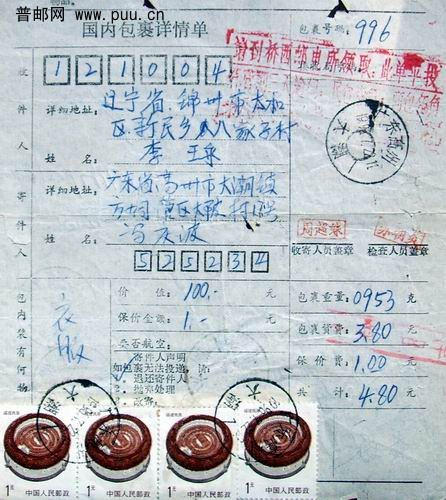 普邮网 www.puu.cn
国内包裹详情单
包裹号码: 996
请到桥西邮电所领取,此单平我
收件人
121004
详细地址: 辽宁省锦州市太和
区新民乡八家子村
姓名
寄件人
详细地址: 广东省高州市大潮镇
姓名
525234
周超荣
收寄人员盖章
检查人员盖章
包内装有何物
衣服
价值: 100,—
保价金额: 1,—
是否航空:
寄件人声明
如包裹无法投递,请:
退还寄件人
抛弃处理
改寄:
包裹重量: 0953 克
包裹资费: 3.80 元
保价费: 1.00 元
共计: 4.80 元
广东高州
大潮
福建民居
1元 中国人民邮政
福建民居
1元 中国人民邮政
福建民居
1元 中国人民邮政
福建民居
1元 中国人民邮政